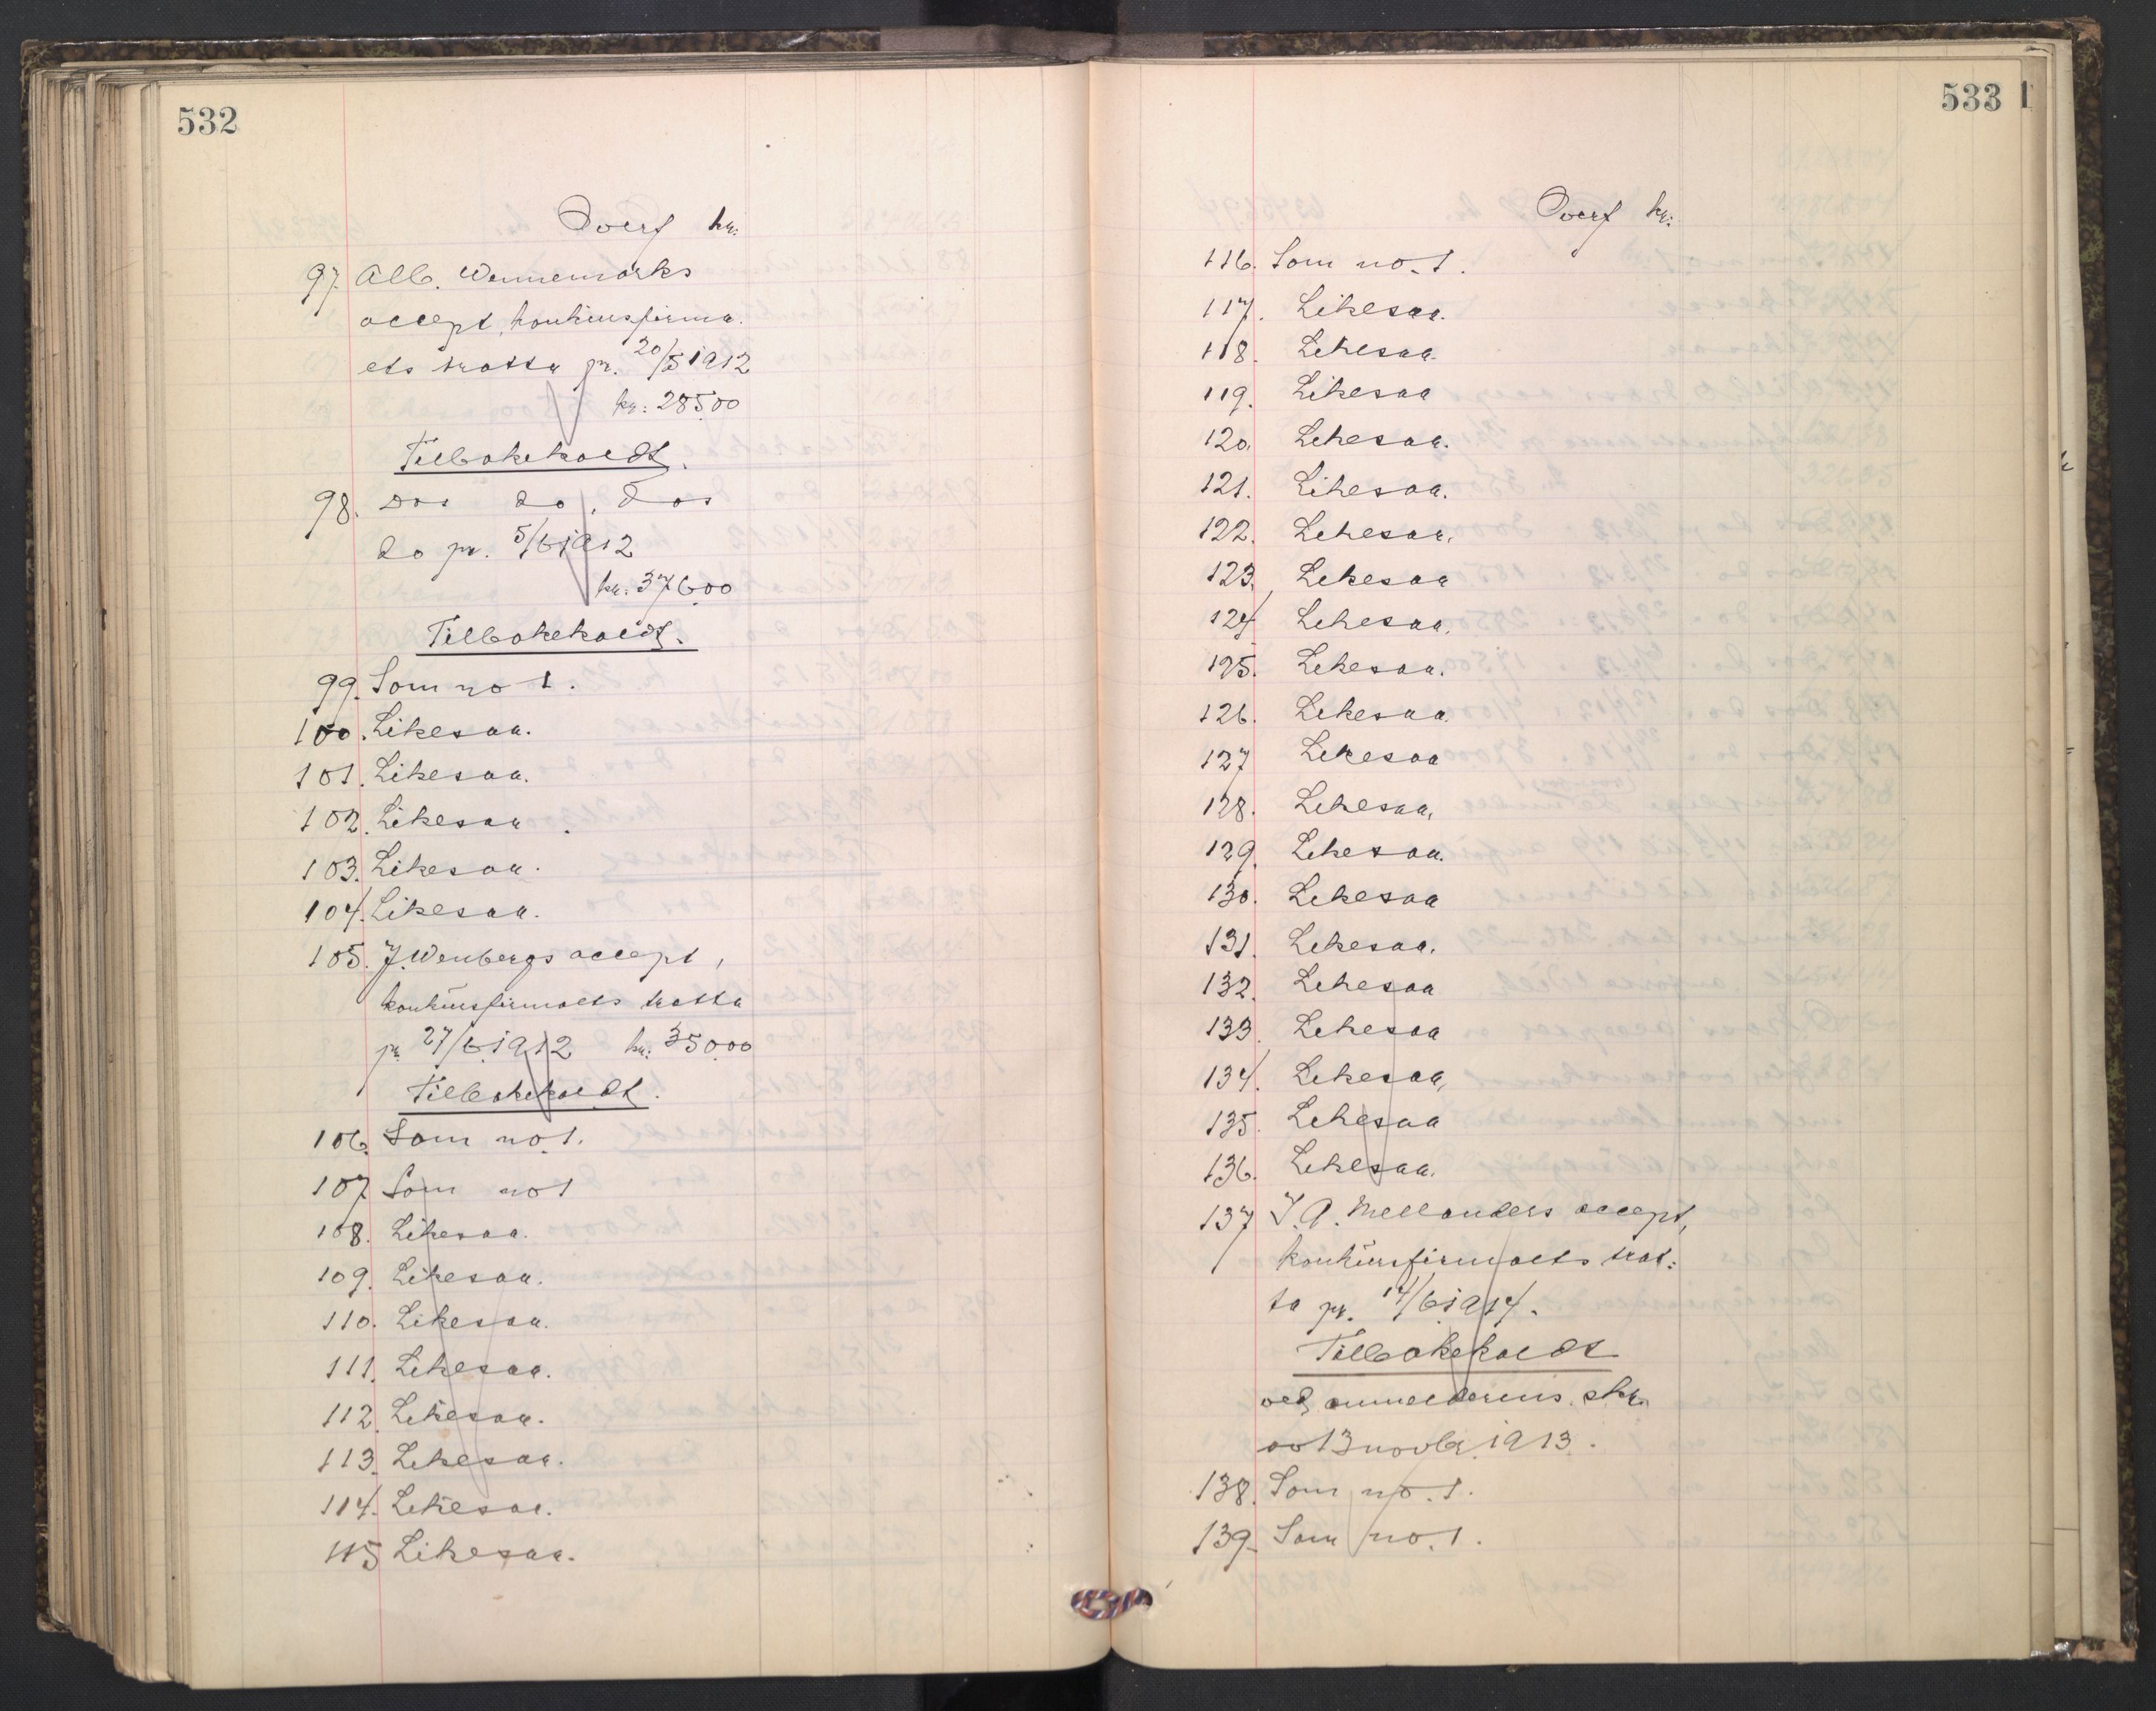 532
Overf kr:
97. Alb. Wennemarks
accept, konkursfirma
ets tratta pr. 20/5 1912
kr: 28500
Tilbakekaldt.
98. Dos do, dos
do pr. 5/6 1912
kr: 37600
Tilbakekaldt.
99. Som no 1.
100. Likesaa.
101. Likesaa.
102. Likesaa.
103. Likesaa.
104. Likesaa.
105. J. Wenbergs accept,
konkursfirmaets tratta
pr. 27/6 1912 kr: 35000
Tilbakekaldt.
106. Som no 1.
107. Som no 1
108. Likesaa.
109. Likesaa.
110. Likesaa.
111. Likesaa.
112. Likesaa.
113. Likesaa.
114. Likesaa.
115 Likesaa.
533
Overf kr:
116. Som no. 1.
117. Likesaa.
118. Likesaa.
119. Likesaa
120. Likesaa.
121. Likesaa.
122. Likesaa.
123. Likesaa
124. Likesaa.
125. Likesaa.
126. Likesaa.
127 Likesaa
128. Likesaa.
129. Likesaa.
130. Likesaa
131. Likesaa.
132. Likesaa
133. Likesaa
134. Likesaa,
135. Likesaa
136. Likesaa.
137 J. A. Mellanders accept,
konkursfirmaets trat:
ta pr. 14/6 1914.
Tilbakekaldt
ved anmelderens skr.
av 13 novbr 1913.
138. Som no. 1.
139. Som no. 1.